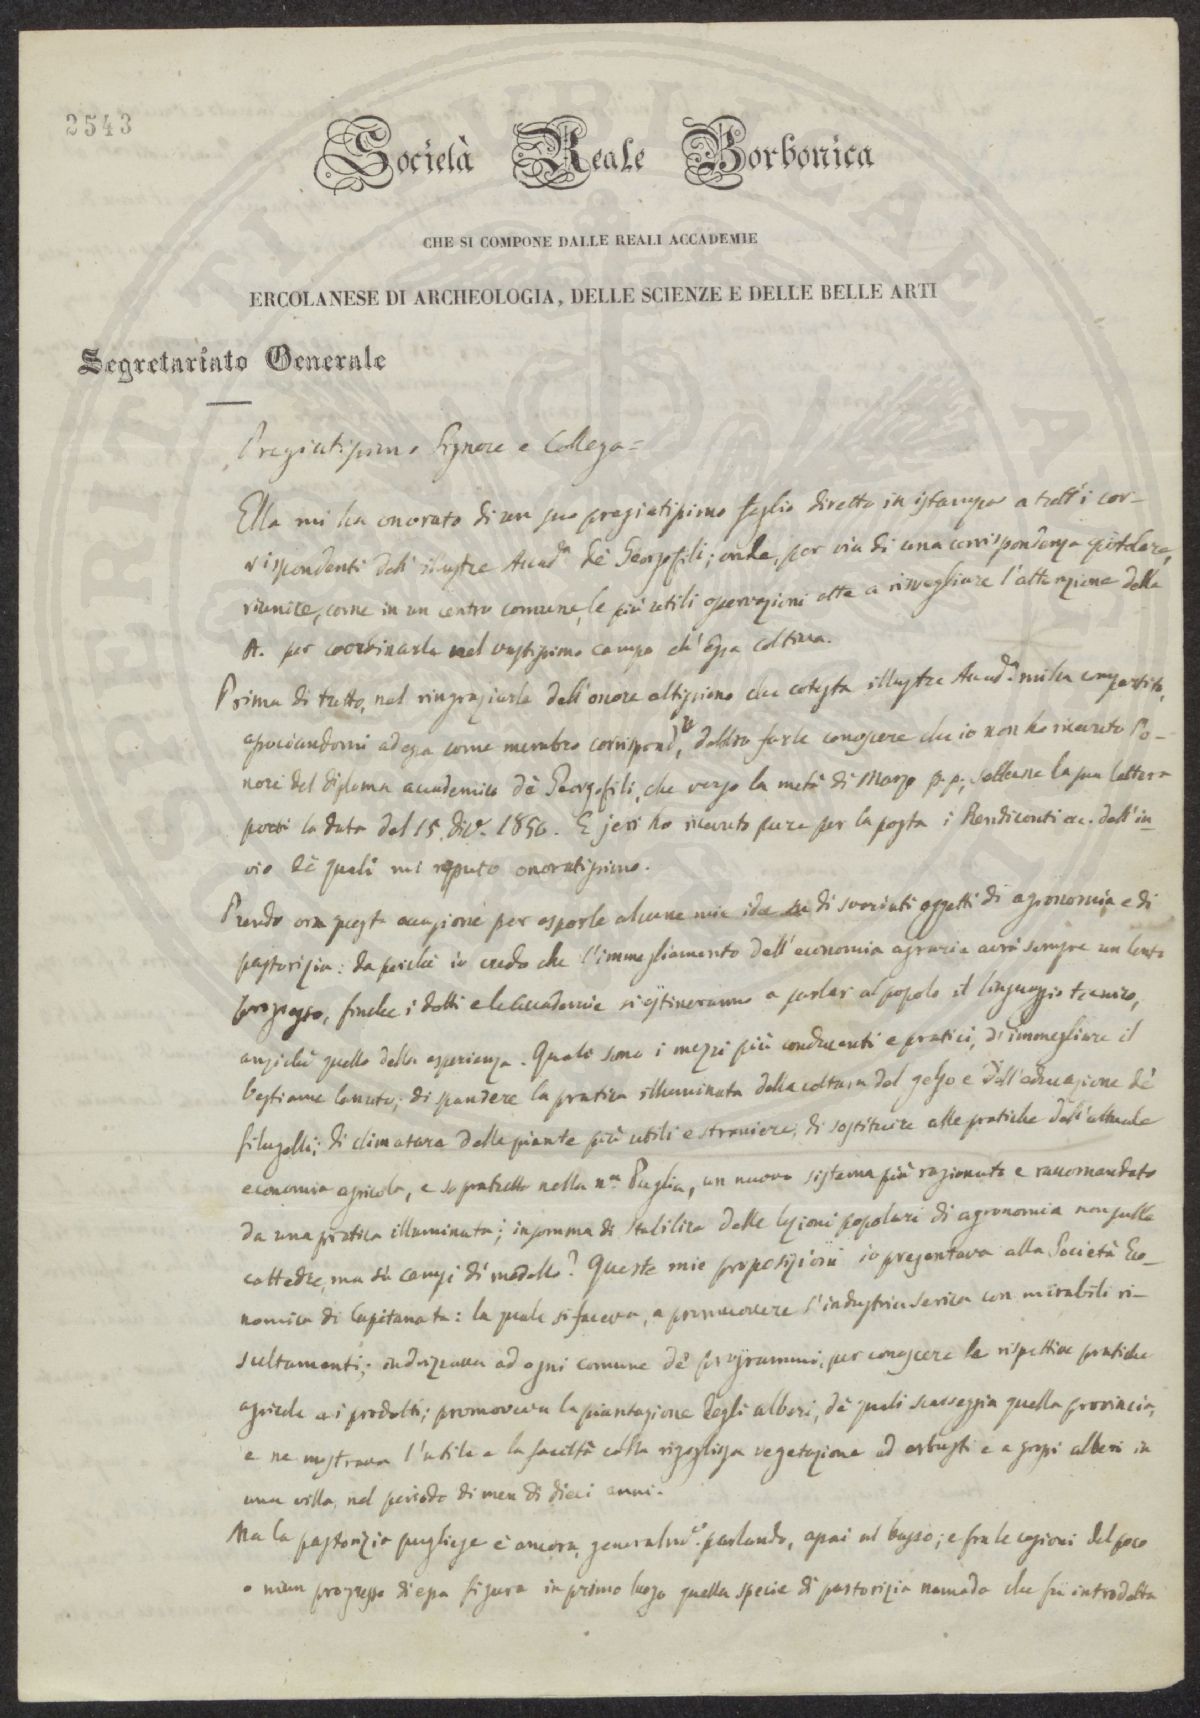 2543
Società Reale Borbonica
CHE SI COMPONE DALLE REALI ACCADEMIE
ERCOLANESE DI ARCHEOLOGIA, DELLE SCIENZE E DELLE BELLE ARTI
Segretariato Generale
Pregiatissimo Signore e Collega=
Ella mi ha onorato di un suo pregiatissimo foglio diretto in istampa a tutt'i cor-
rispondenti dell'illustre Accad.a de' Georgofili; onde, per via di una corrispondenza epistolare,
riunire, come in un centro comune, le più utili osservazioni atte a risvegliare l'attenzione della
A. per coordinarle nel vastissimo campo ch'essa coltiva.
Prima di tutto, nel ringraziarla dell'onore altissimo che cotesta illustre Accad.a mi ha compartito,
associandomi ad essa come membro corrispond.te, debbo farle conoscere che io non ho ricevuto l'o-
nore del diploma accademico de' Georgofili, che verso la metà di Marzo p.p., sebbene la sua lettera
porti la data del 15. dic. 1856. E jeri ho ricevuto pure per la posta i Rendiconti ec. dell'in-
vio de' quali mi reputo onoratissimo.
Prendo ora questa occasione per esporle alcune mie idee di svariati oggetti di agronomia e di
pastorizia: da poichè io credo che l'immegliamento dell'economia agraria avrà sempre un lento
progresso, finchè i dotti e le Accademie si ostineranno a parlar al popolo il linguaggio tecnico,
anzichè quello della esperienza. Quali sono i mezzi più conducenti e pratici, d'immegliare il
bestiame lanuto; di spandere la pratica illuminata della coltura del gelso e dell'educazione de'
filugelli; di climatare delle piante più utili e straniere; di sostituire alle pratiche dell'attuale
economia agricola, e sopratutto nella n.a Puglia, un nuovo sistema più ragionato e raccomandato
da una pratica illuminata; insomma di stabilire delle lezioni popolari di agronomia non sulle
cattedre, ma su' campi di modello? Queste mie proposizioni io presentava alla Società Eco-
nomica di Capitanata: la quale si faceva, a promuovere l'industria serica con mirabili ri-
sultamenti; indrizzava ad ogni comune de' programmi, per conoscere le rispettive pratiche
agricole e i prodotti; promoveva la piantagione degli alberi, de' quali scarseggia quella provincia,
e ne mostrava l'utile e la facoltà colla rigogliosa vegetazione ad arbusti e a grossi alberi in
una villa, nel periodo di men di dieci anni.
Ma la pastorizia pugliese è ancora, generalm.e parlando, assai al basso; e fra le cagioni del poco
o niun progresso di essa figura in primo luogo quella specie di pastorizia nomade che fu introdotta